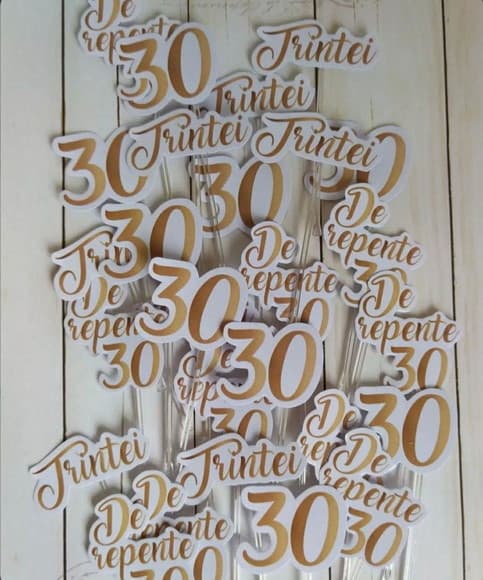 De
repente
30
Trintei
Trintei
30
Trintei
Trintei
30
30
De
repente
30
30
Trintei
De
repente
30
De
repente
30
30
De
repente
30
30
De
repente
30
De
30
Trintei
Trintei
De
repente
30
De
De
repente
30
30